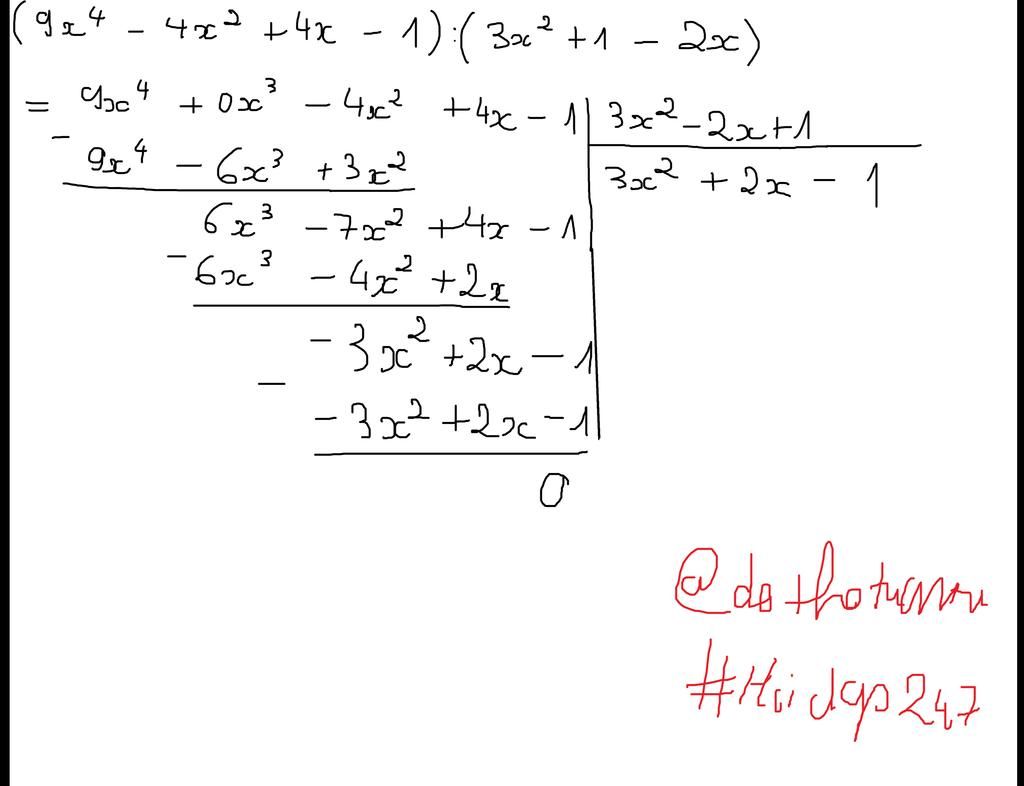 (9x⁴ - 4x² + 4x - 1):(3x² + 1 - 2x)
= 9x⁴ + 0x³ - 4x² + 4x - 1 | 3x² - 2x + 1
- 9x⁴ - 6x³ + 3x² | 3x² + 2x - 1
6x³ - 7x² + 4x - 1
- 6x³ - 4x² + 2x
- 3x² + 2x - 1
-
- 3x² + 2x - 1
0
#Hoidap247